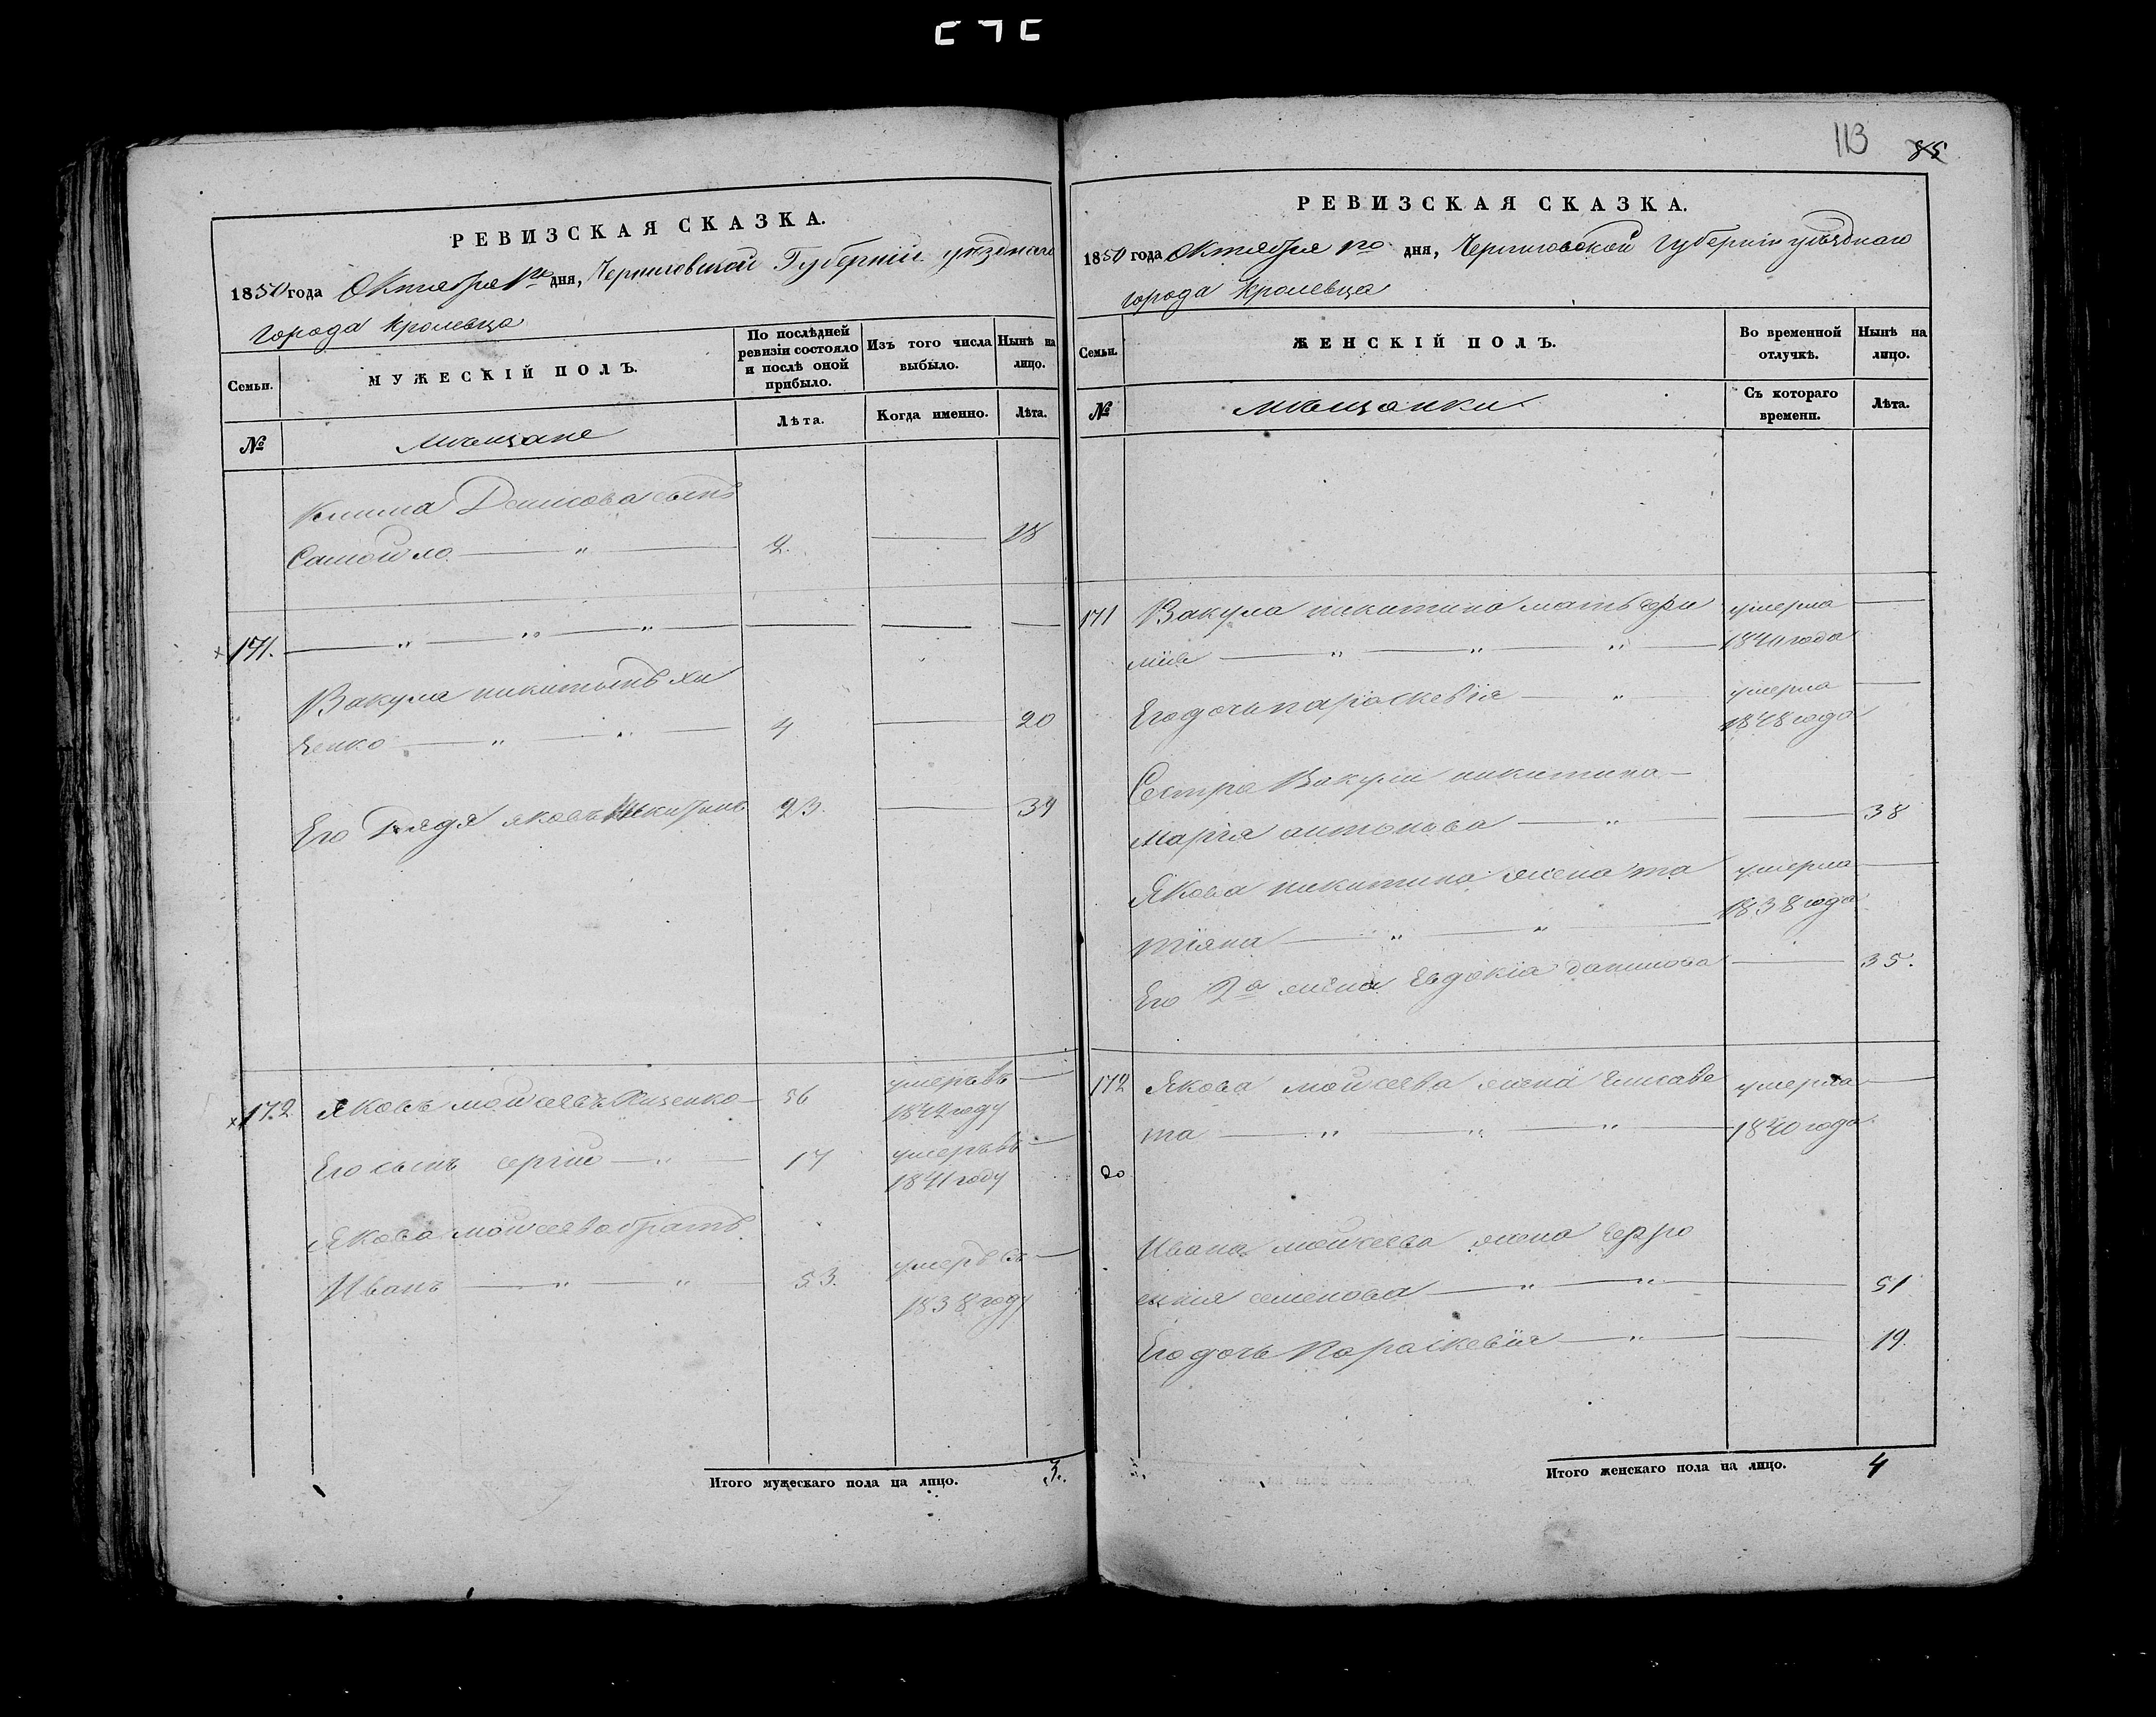 113 85
РЕВИЗСКАЯ СКАЗКА.
1850 года Октября 1го дня, Черниговской Губернии уѣзднаго
города Кролевца
Семьи.
МУЖЕСКІЙ ПОЛЪ.
По послѣдней ревизіи состояло и послѣ оной прибыло.
Изъ того числа выбыло.
Нынѣ на лицо.
№
мѣщане
Лѣта.
Когда именно.
Лѣта.
Клима Денисова сынъ
Самойло — " — 2. — 18
171. — " — " — " —
Вакула никитинъ
ченко — " — " — 4 — 20
Его Дядя яковъ Никитинъ 23. — 39
172 Яковъ мойсеевъ — 56 умеръ въ —
1842 году
Его сынъ сергій — " — 17 умеръ въ —
1841 году
Якова мойсеева братъ
Иванъ — " — " — 53. умеръ въ —
1838 году
Итого мужескаго пола на лицо. 3.
РЕВИЗСКАЯ СКАЗКА.
1850 года Октября 1го дня, Черниговской Губерніи уѣзднаго
города Кролевца
Семьи.
ЖЕНСКІЙ ПОЛЪ.
Во временной отлучкѣ.
Нынѣ на лицо.
№
мѣщанки
Съ котораго времени.
Лѣта.
171 Вакула никитина мать ефи умерла —
мія — " — " — " — 1840 года
Его дочь параскевія — " — умерла —
1848 года
Сестра Вакули никитина —
марія антонова — " — — 38
Якова никитина жена та умерла —
тіяна — " — " — 1838 года
Его 2а жена Евдокіа — 35.
172 Якова мойсеева жена Елисаве умерла —
та — " — " — " — 1840 года
20
Ивана мойсеева жена Ефро
синія семенова — " — " — 51
Его дочь Параскевія — " — — 19.
Итого женскаго пола на лицо. 4